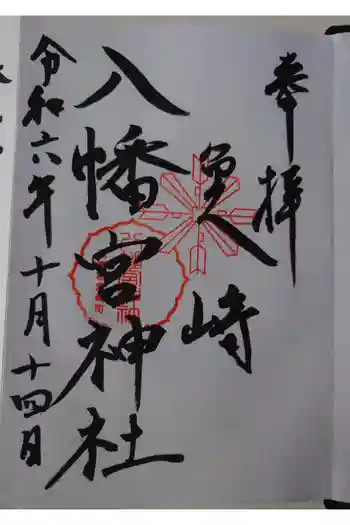 奉拝
鬼崎
八幡宮神社
令和六年十月十四日